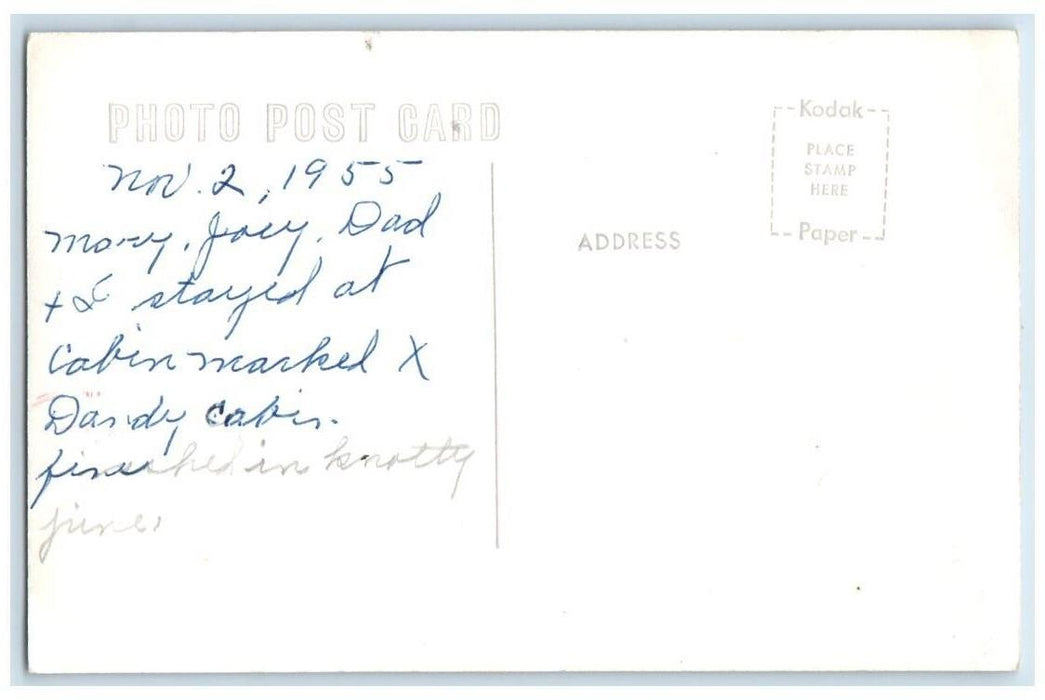 PHOTO POST CARD
Nov. 2, 1955
Mary, Joey, Dad
+ I stayed at
Cabin marked X
Dandy Cabin.
finished in knotty
pine.
ADDRESS
Kodak
PLACE
STAMP
HERE
Paper